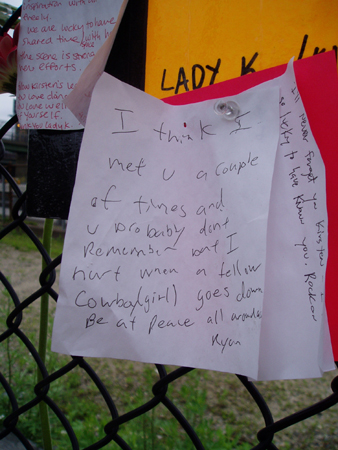 inspiration with us
freely.
we are lucky to have
shared time with her
The scene is
efforts.
love
love well
yourself.
Lady K.
LADY K
I think I
met u a couple
of times and
u probably dont
Remember but I
hurt when a fellow
Cowboy(girl) goes down
Be at peace all
Ryan
I'll never forget you
lucky to have known you. Rock on